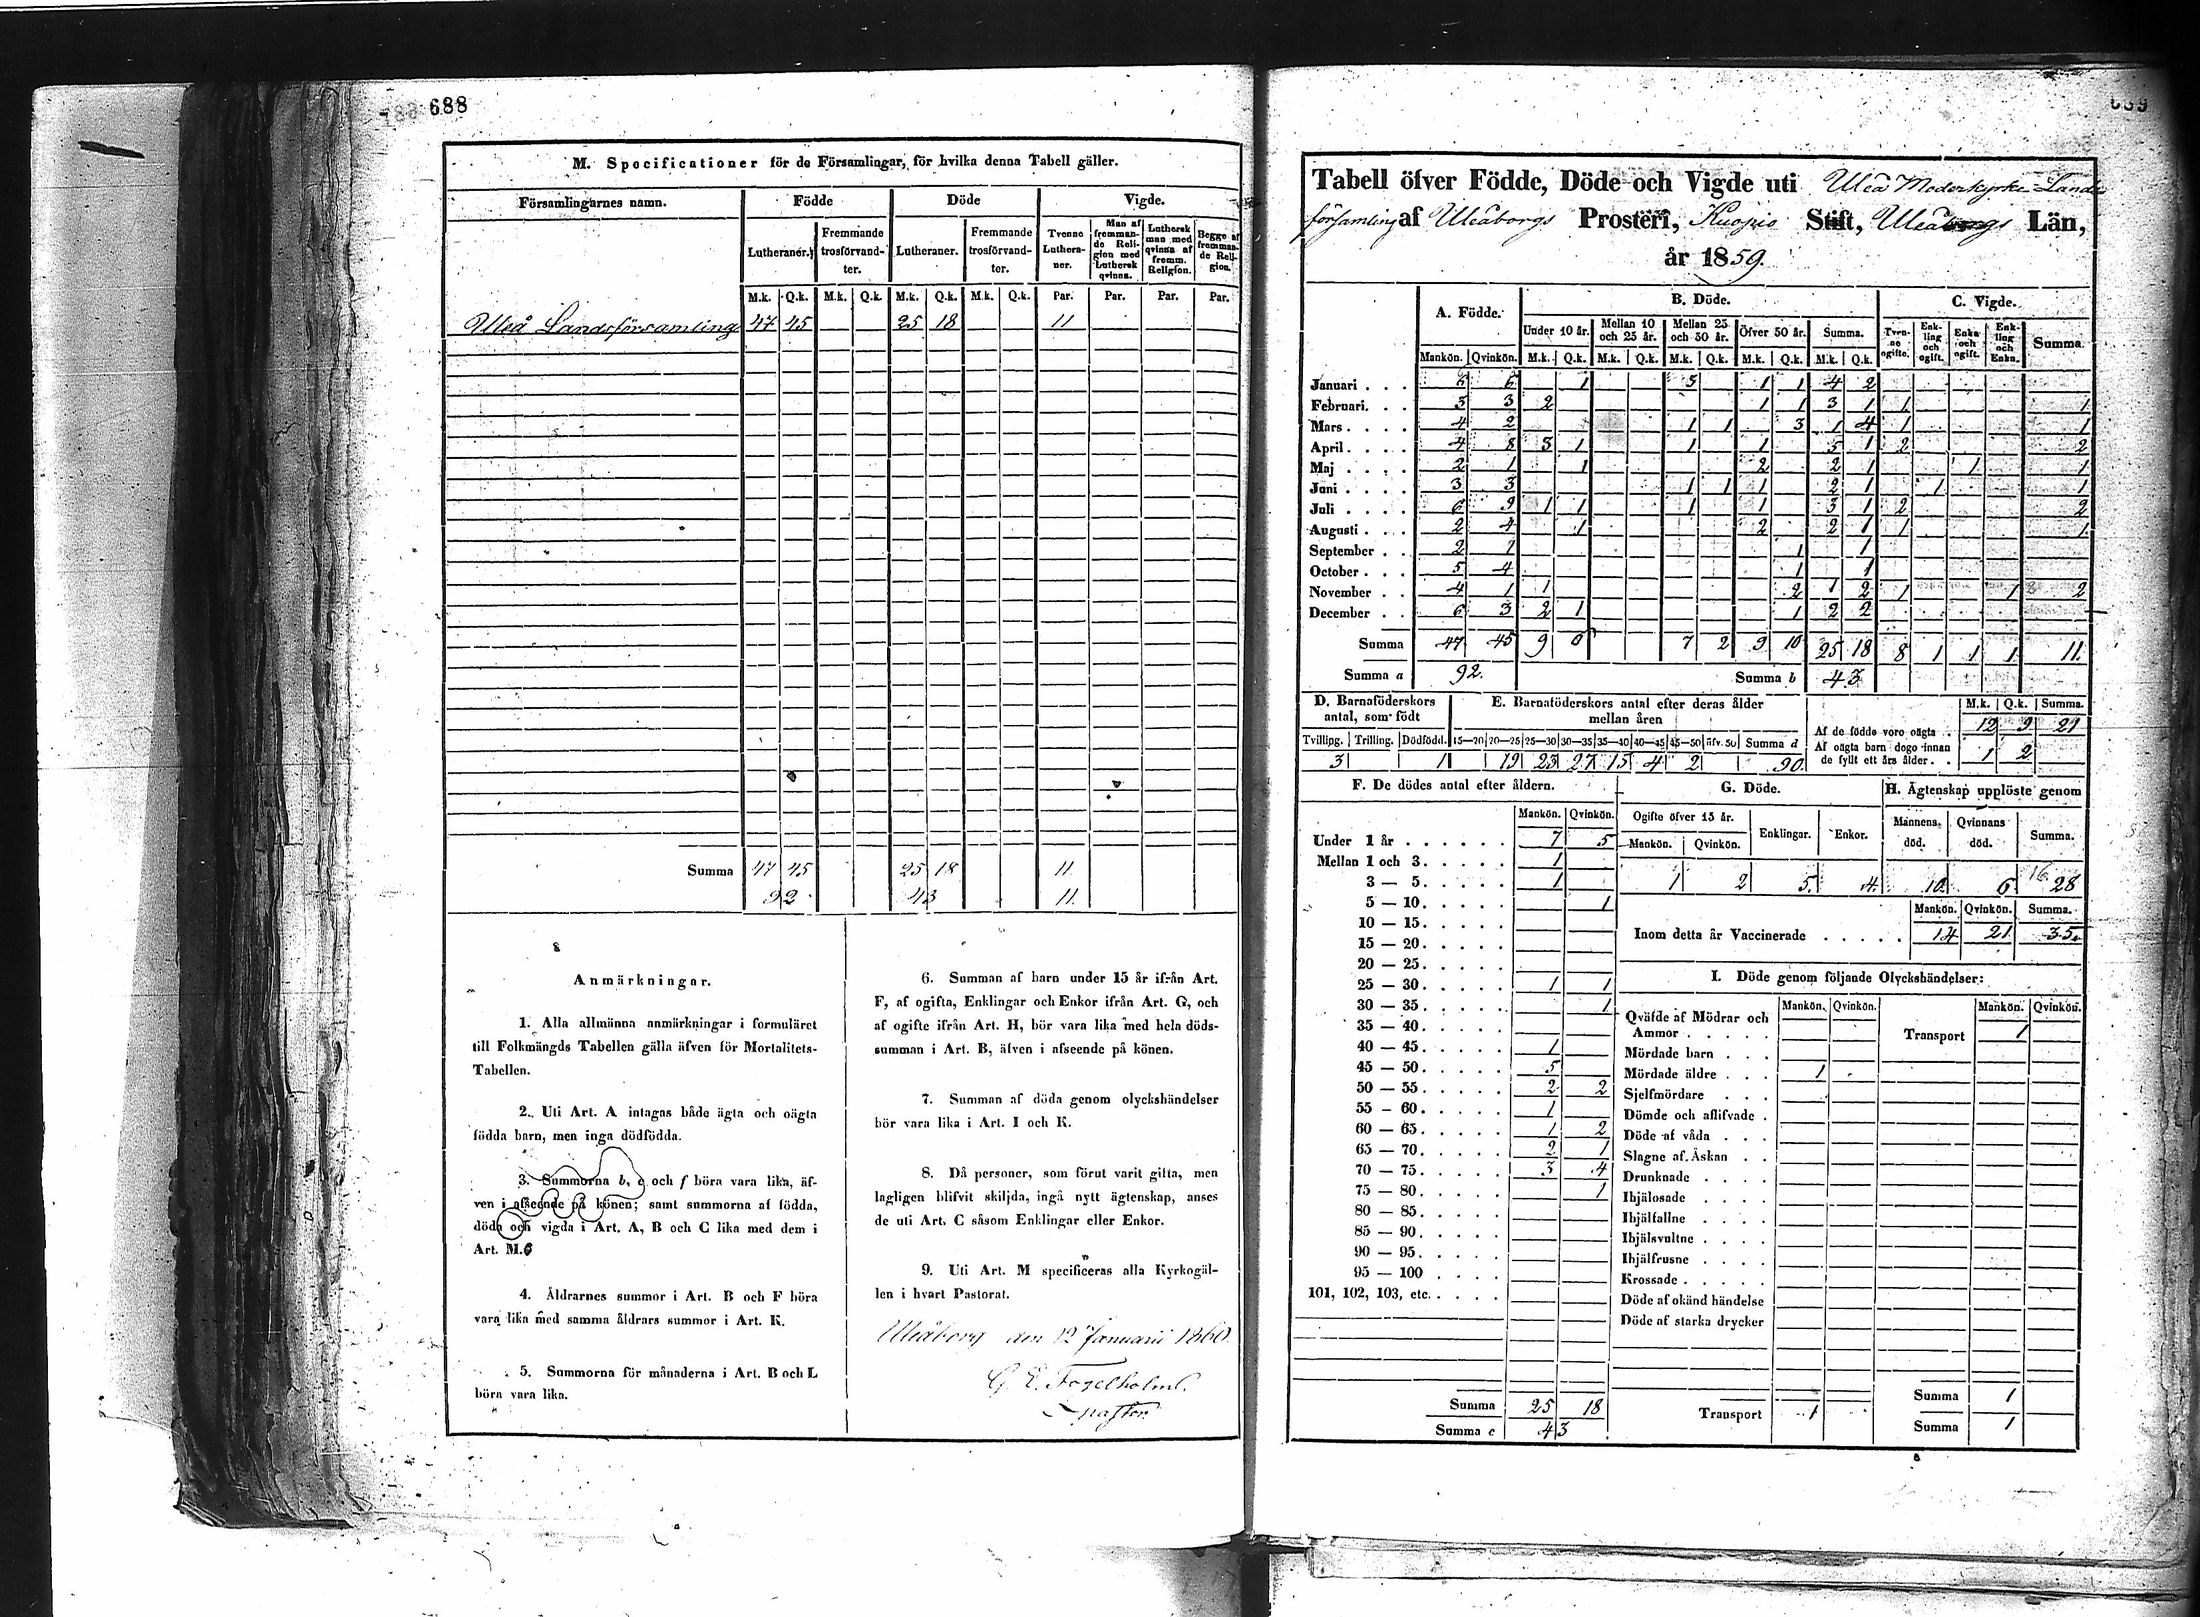 688
M. Specificationer för de Församlingar, för hvilka denna Tabell gäller.
Församlingarnes namn. Födde Döde Vigde.
Lutheraner. Fremmande trosförvandter. Lutheraner. Fremmande trosförvandter. Tvenne Lutheraner. Man af fremmande Religion med Luthersk qvinna. Luthersk man med qvinna af fremm. Religion. Begge af fremmande Religion.
M.k. Q.k. M.k. Q.k. M.k. Q.k. M.k. Q.k. Par. Par. Par. Par.
Uleå Landsförsamling 47 45 25 18 11
Summa 47 45 25 18 11
92 43 11.
Anmärkningar.
1. Alla allmänna anmärkningar i formuläret
till Folkmängds Tabellen gälla äfven för Mortalitets-
Tabellen.
2. Uti Art. A intagas både ägta och oägta
födda barn, men inga dödfödda.
3. Summorna b, c och f böra vara lika, äf-
ven i afseende på könen; samt summorna af födda,
döda och vigda i Art. A, B och C lika med dem i
Art. M.
4. Åldrarnes summor i Art. B och F böra
vara lika med samma åldrars summor i Art. K.
5. Summorna för månaderna i Art. B och L
böra vara lika.
6. Summan af barn under 15 år ifrån Art.
F, af ogifta, Enklingar och Enkor ifrån Art. G, och
af ogifte ifrån Art. H, bör vara lika med hela döds-
summan i Art. B, äfven i afseende på könen.
7. Summan af döda genom olyckshändelser
bör vara lika i Art. I och K.
8. Då personer, som förut varit gifta, men
lagligen blifvit skiljda, ingå nytt ägtenskap, anses
de uti Art. C såsom Enklingar eller Enkor.
9. Uti Art. M specificeras alla Kyrkogäl-
len i hvart Pastorat.
Uleåborg den 12 Januarii 1860.
G. E. Fogelholm.
pastor
Tabell öfver Födde, Döde och Vigde uti Uleå Moderkyrko Lands
församling af Uleåborgs Prosteri, Kuopio Stift, Uleåborgs Län,
år 1859.
A. Födde. B. Döde. C. Vigde.
Under 10 år. Mellan 10 och 25 år. Mellan 25 och 50 år. Öfver 50 år. Summa. Tvenne ogifte. Enkling och ogift. Enka och ogift. Enkling och Enka. Summa.
Mankön. Qvinkön. M.k. Q.k. M.k. Q.k. M.k. Q.k. M.k. Q.k. M.k. Q.k.
Januari 6 6 1 3 1 1 4 2
Februari. 3 3 2 1 1 3 1 1 1
Mars 4 2 1 1 3 1 4 1 1
April 4 8 3 1 1 1 5 1 2 2
Maj 2 1 1 2 2 1 1 1
Juni 3 3 1 1 1 2 1 1 1
Juli 6 9 1 1 1 1 3 1 2 2
Augusti 2 4 1 2 2 1 1 1
September 2 1 1 1
October 5 4 1 1
November 4 1 1 2 1 2 1 1 2
December 6 3 2 1 1 2 2
Summa 47 45 9 7 2 9 10 25 18 8 1 1 1 11.
Summa a 92. Summa b 43
D. Barnaföderskors antal, som födt
Tvilling. Trilling. Dödfödd.
3 1
E. Barnaföderskors antal efter deras ålder mellan åren
15—20 20—25 25—30 30—35 35—40 40—45 45—50 öfv. 50 Summa d
19 23 27 15 4 2 90.
M.k. Q.k. Summa.
Af de födde voro oägta 12 9 21
Af oägta barn dogo innan
de fyllt ett års ålder 1 2
F. De dödes antal efter åldern.
Mankön. Qvinkön.
Under 1 år 7 5
Mellan 1 och 3 1
3 — 5 1
5 — 10 1
10 — 15
15 — 20
20 — 25
25 — 30 1 1
30 — 35 1
35 — 40
40 — 45 1
45 — 50 5
50 — 55 2 2
55 — 60 1
60 — 65 1 2
65 — 70 2 1
70 — 75 3 4
75 — 80 1
80 — 85
85 — 90
90 — 95
95 — 100
101, 102, 103, etc.
Summa 25 18
Summa c 43
G. Döde.
Ogifte öfver 15 år. Enklingar. Enkor.
Mankön. Qvinkön.
1 2 5. 4.
H. Ägtenskap upplöste genom
Mannens död. Qvinnans död. Summa.
10 6 16. 28
Mankön. Qvinkön. Summa.
Inom detta år Vaccinerade 14 21 35.
I. Döde genom följande Olyckshändelser:
Mankön. Qvinkön. Mankön. Qvinkön.
Qväfde af Mödrar och
Ammor Transport 1
Mördade barn
Mördade äldre 1
Sjelfmördare
Dömde och aflifvade
Döde af våda
Slagne af Åskan
Drunknade
Ihjälosade
Ihjälfallne
Ihjälsvultne
Ihjälfrusne
Krossade
Döde af okänd händelse
Döde af starka drycker
Summa 1
Transport 1 Summa 1